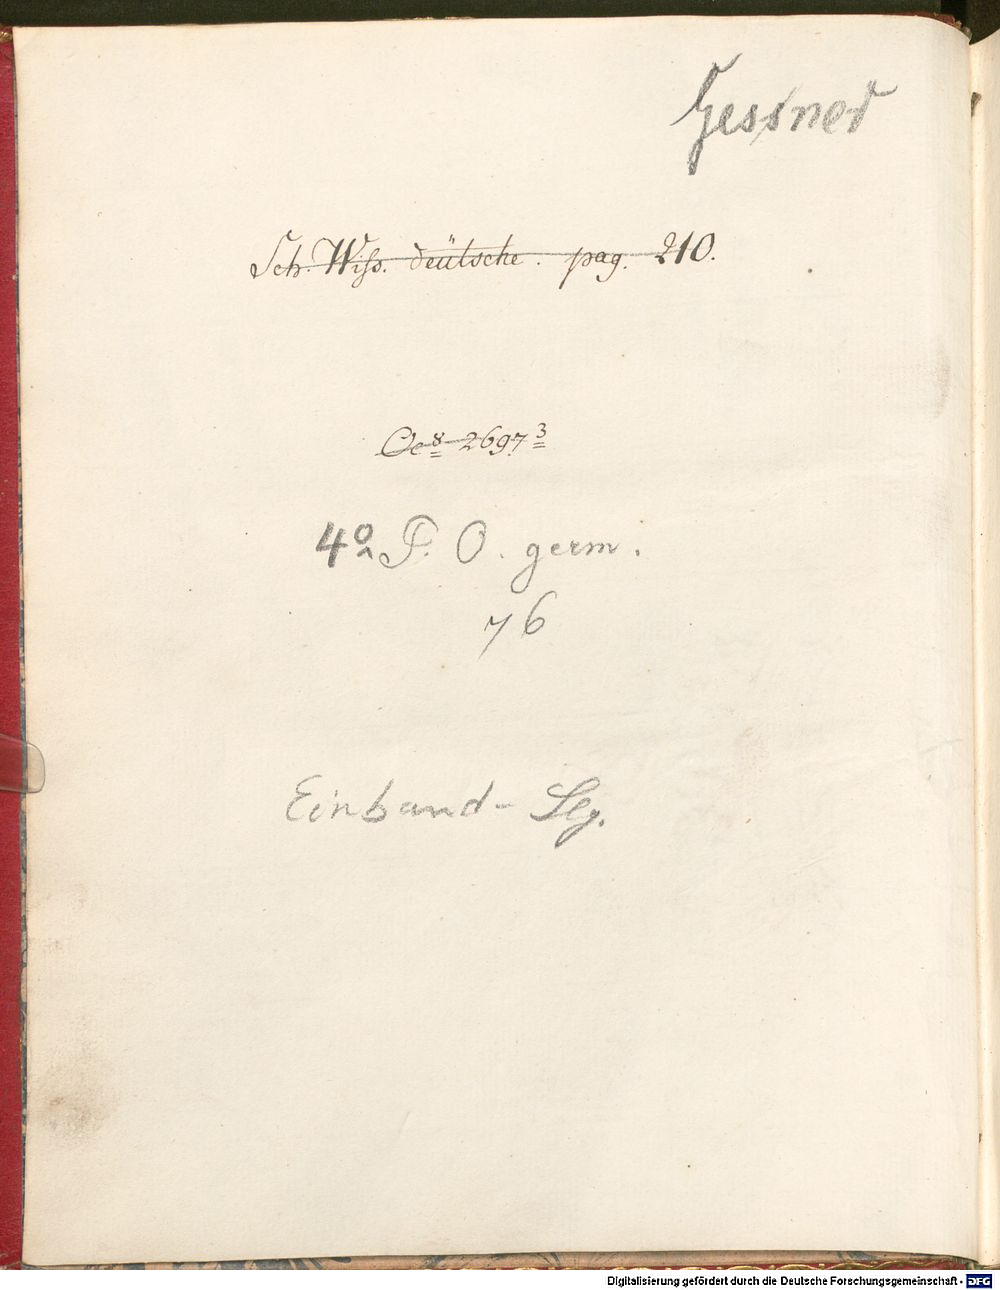 Gessner
Sch. Wiss. deütsche. pag. 210.
Oe 8 2697 3
4° P. O. germ.
76
Einband-Slg.
Digitalisierung gefördert durch die Deutsche Forschungsgemeinschaft - DFG